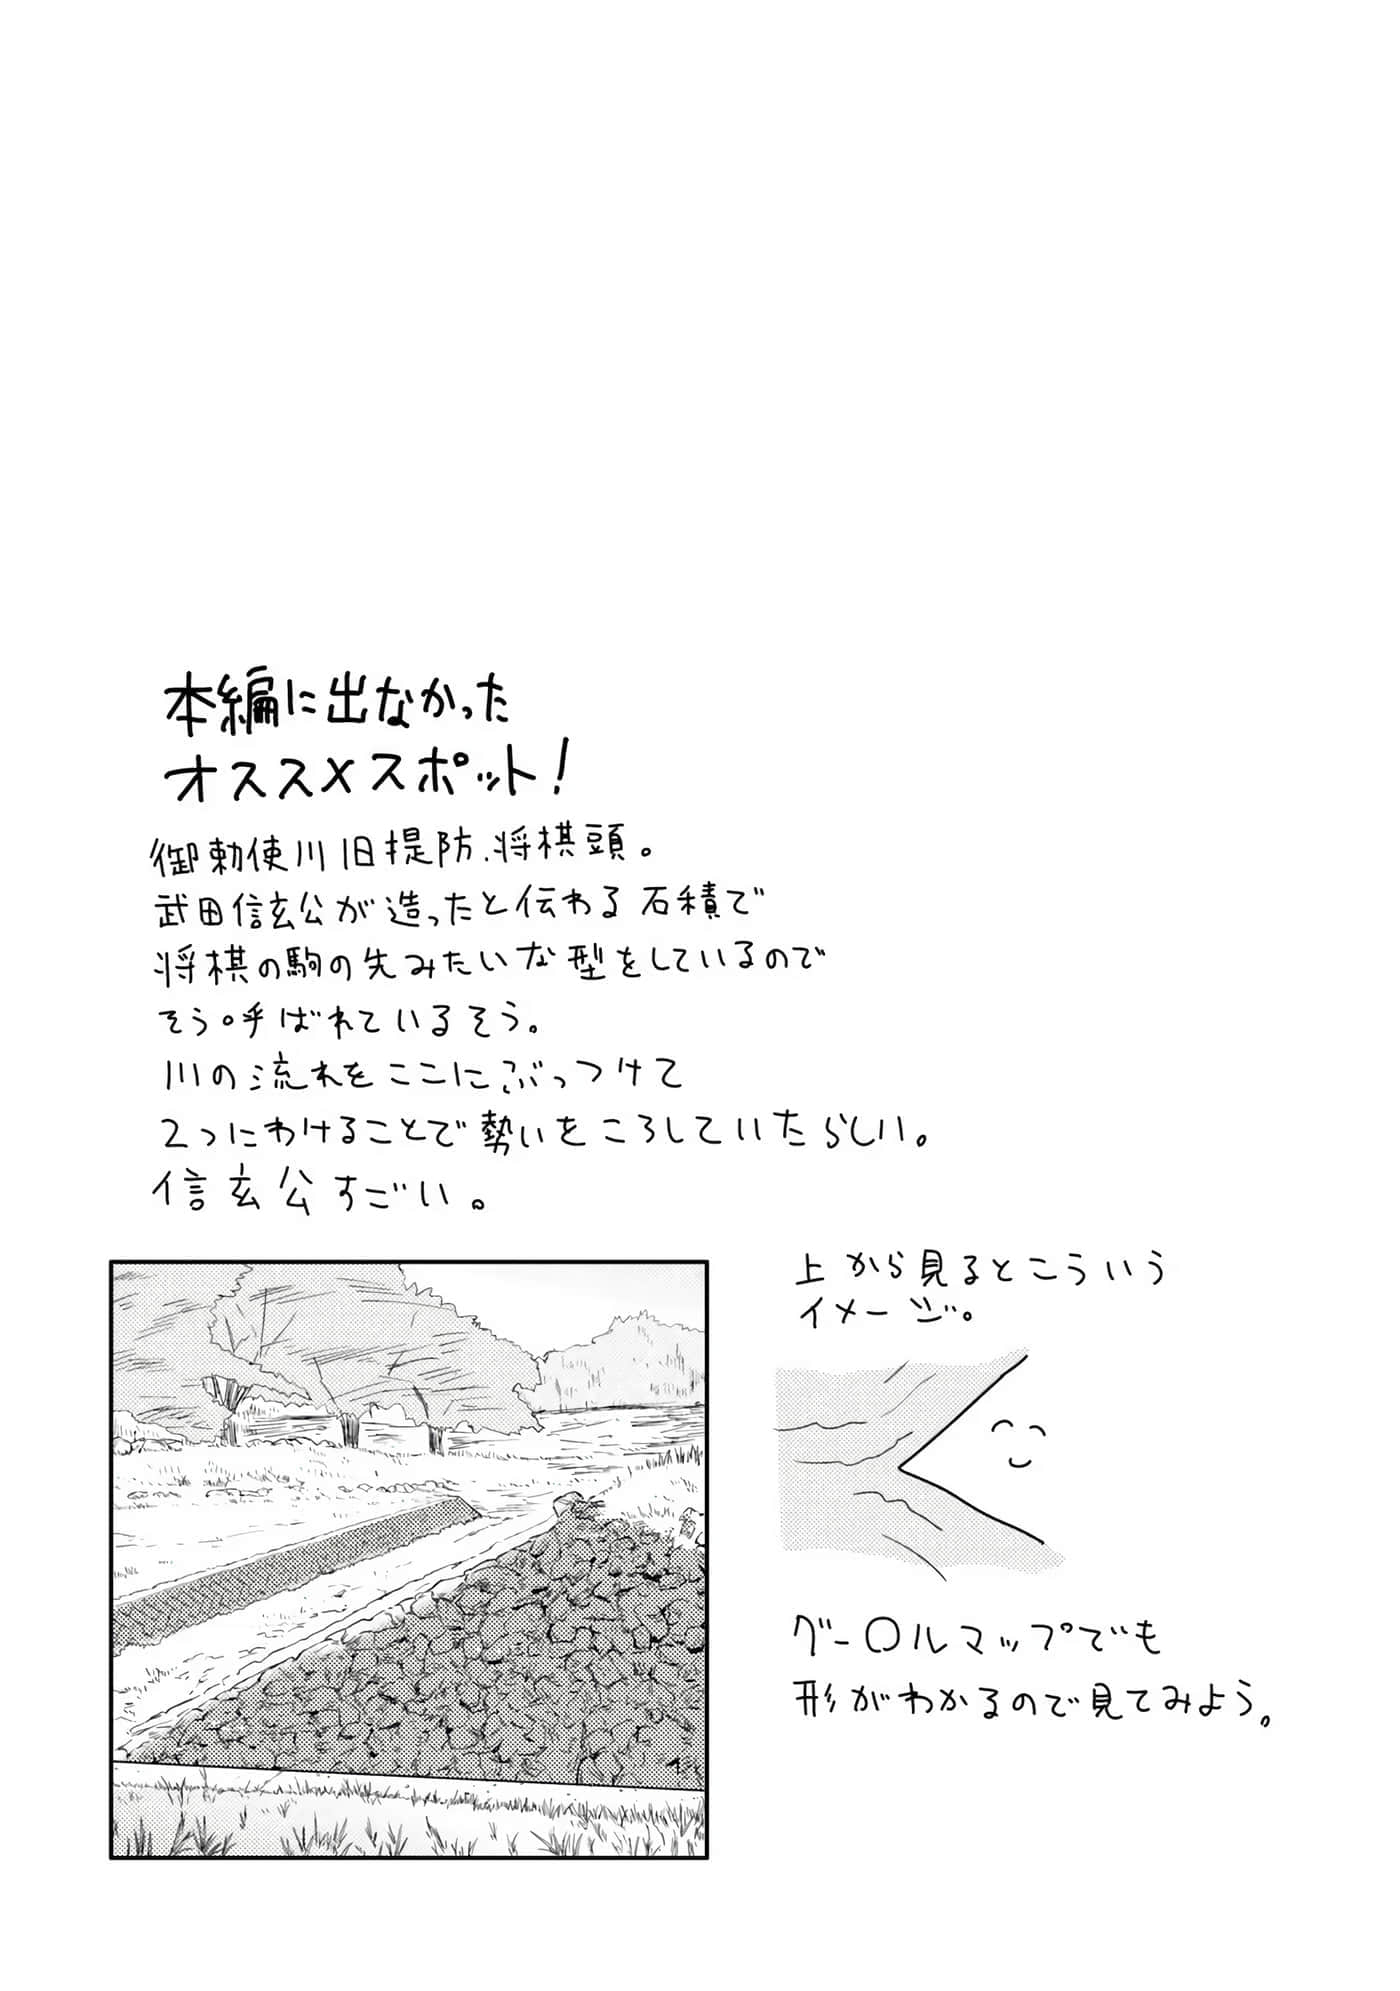 本編に出なかった
オススメスポット!
御勅使川旧堤防、将棋頭。
武田信玄公が造ったと伝わる石積で
将棋の駒の先みたいな型をしているので
そう呼ばれているそう。
川の流れをここにぶっつけて
2つにわけることで勢いをころしていたらしい。
信玄公すごい。
上から見るとこういう
イメージ。
グー〇ルマップでも
形がわかるので見てみよう。